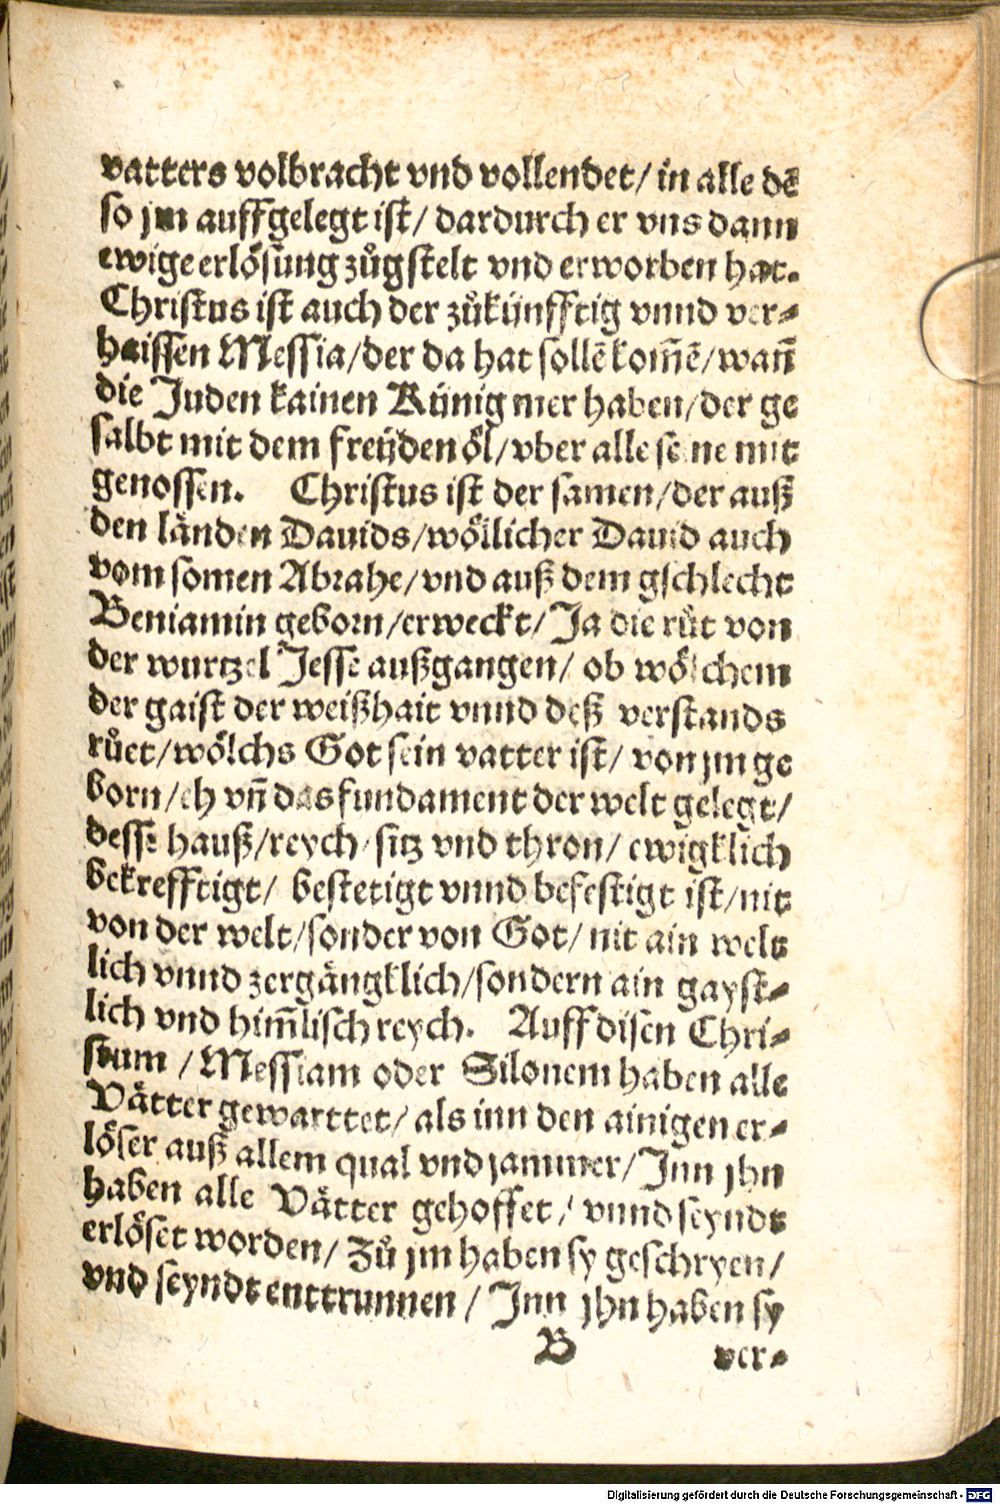 vatters volbracht vnd vollendet/ in alle dẽ
so jm auffgelegt ist/ dardurch er vns dann
ewige erlösung zůgstelt vnd erworben hat.
Christus ist auch der zůkünfftig vnnd ver⸗
haissen Messia/der da hat sollẽ kom̃ẽ/wañ
die Juden kainen Künig mer haben/der ge
salbt mit dem freüden öl/vber alle seine mit
genossen. Christus ist der samen/der auß
den länden Dauids/wöllicher Dauid auch
vom somen Abrahe/vnd auß dem gschlecht
Beniamin geborn/erweckt/Ja die růt von
der wurtzel Jesse außgangen/ ob wölchem
der gaist der weißhait vnnd deß verstands
růet/wölchs Got sein vatter ist/ von jm ge
born/eh vñ das fundament der welt gelegt/
desse hauß/reych/sitz vnd thron/ ewigklich
bekrefftigt/ bestetigt vnnd befestigt ist/nit
von der welt/sonder von Got/ nit ain welt
lich vnnd zergängklich/sondern ain gayst⸗
lich vnd him̃lisch reych. Auff disen Chri⸗
stum /Messiam oder Silonem haben alle
Vätter gewarttet/ als inn den ainigen er⸗
löser auß allem qual vnd jammer/Inn jhn
haben alle Vätter gehoffet/ vnnd seyndt
erlöset worden/ Zů jm haben sy geschryen/
vnd seyndt enttrunnen / Inn jhn haben sy
B ver⸗
Digitalisierung gefördert durch die Deutsche Forschungsgemeinschaft - DFG